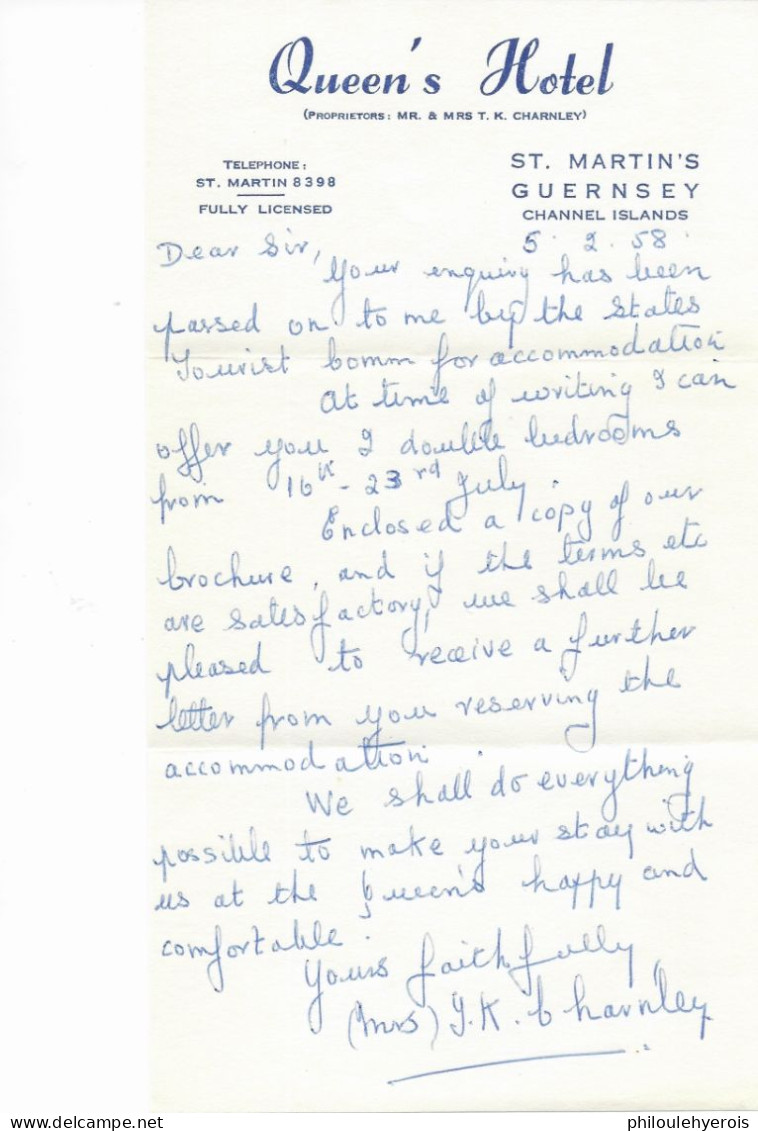 Queen's Hotel
(PROPRIETORS: MR. & MRS T. K. CHARNLEY)
TELEPHONE:
ST. MARTIN 8398
FULLY LICENSED
ST. MARTIN'S
GUERNSEY
CHANNEL ISLANDS
5. 2. 58.
Dear Sir,
Your enquiry has been
passed on to me by the States
Tourist Comm for accommodation
At time of writing I can
offer you 2 double bedrooms
from 16th - 23rd July.
Enclosed a copy of our
brochure, and if the terms etc
are satisfactory, we shall be
pleased to receive a further
letter from you reserving the
accommodation.
We shall do everything
possible to make your stay with
us at the Queen's happy and
comfortable.
Yours faithfully
(Mrs) T. K. Charnley
delcampe.net
philoulehyerois